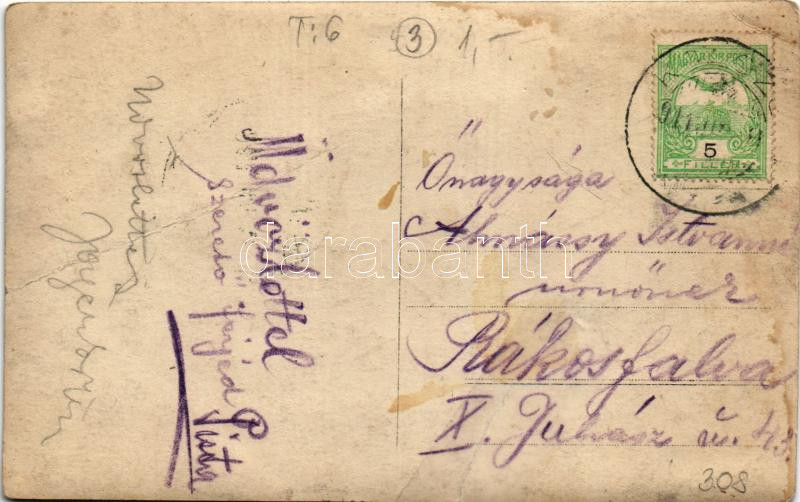 T:6
3
1,-
MAGYAR KIR. POSTA
5
FILLÉR
Üdvözlettel
szerető férjed
Pista
Őnagysága
Almássy Istvánné
úrnőnek
Rákosfalva
X. Juhász u. 43.
308
darabanth